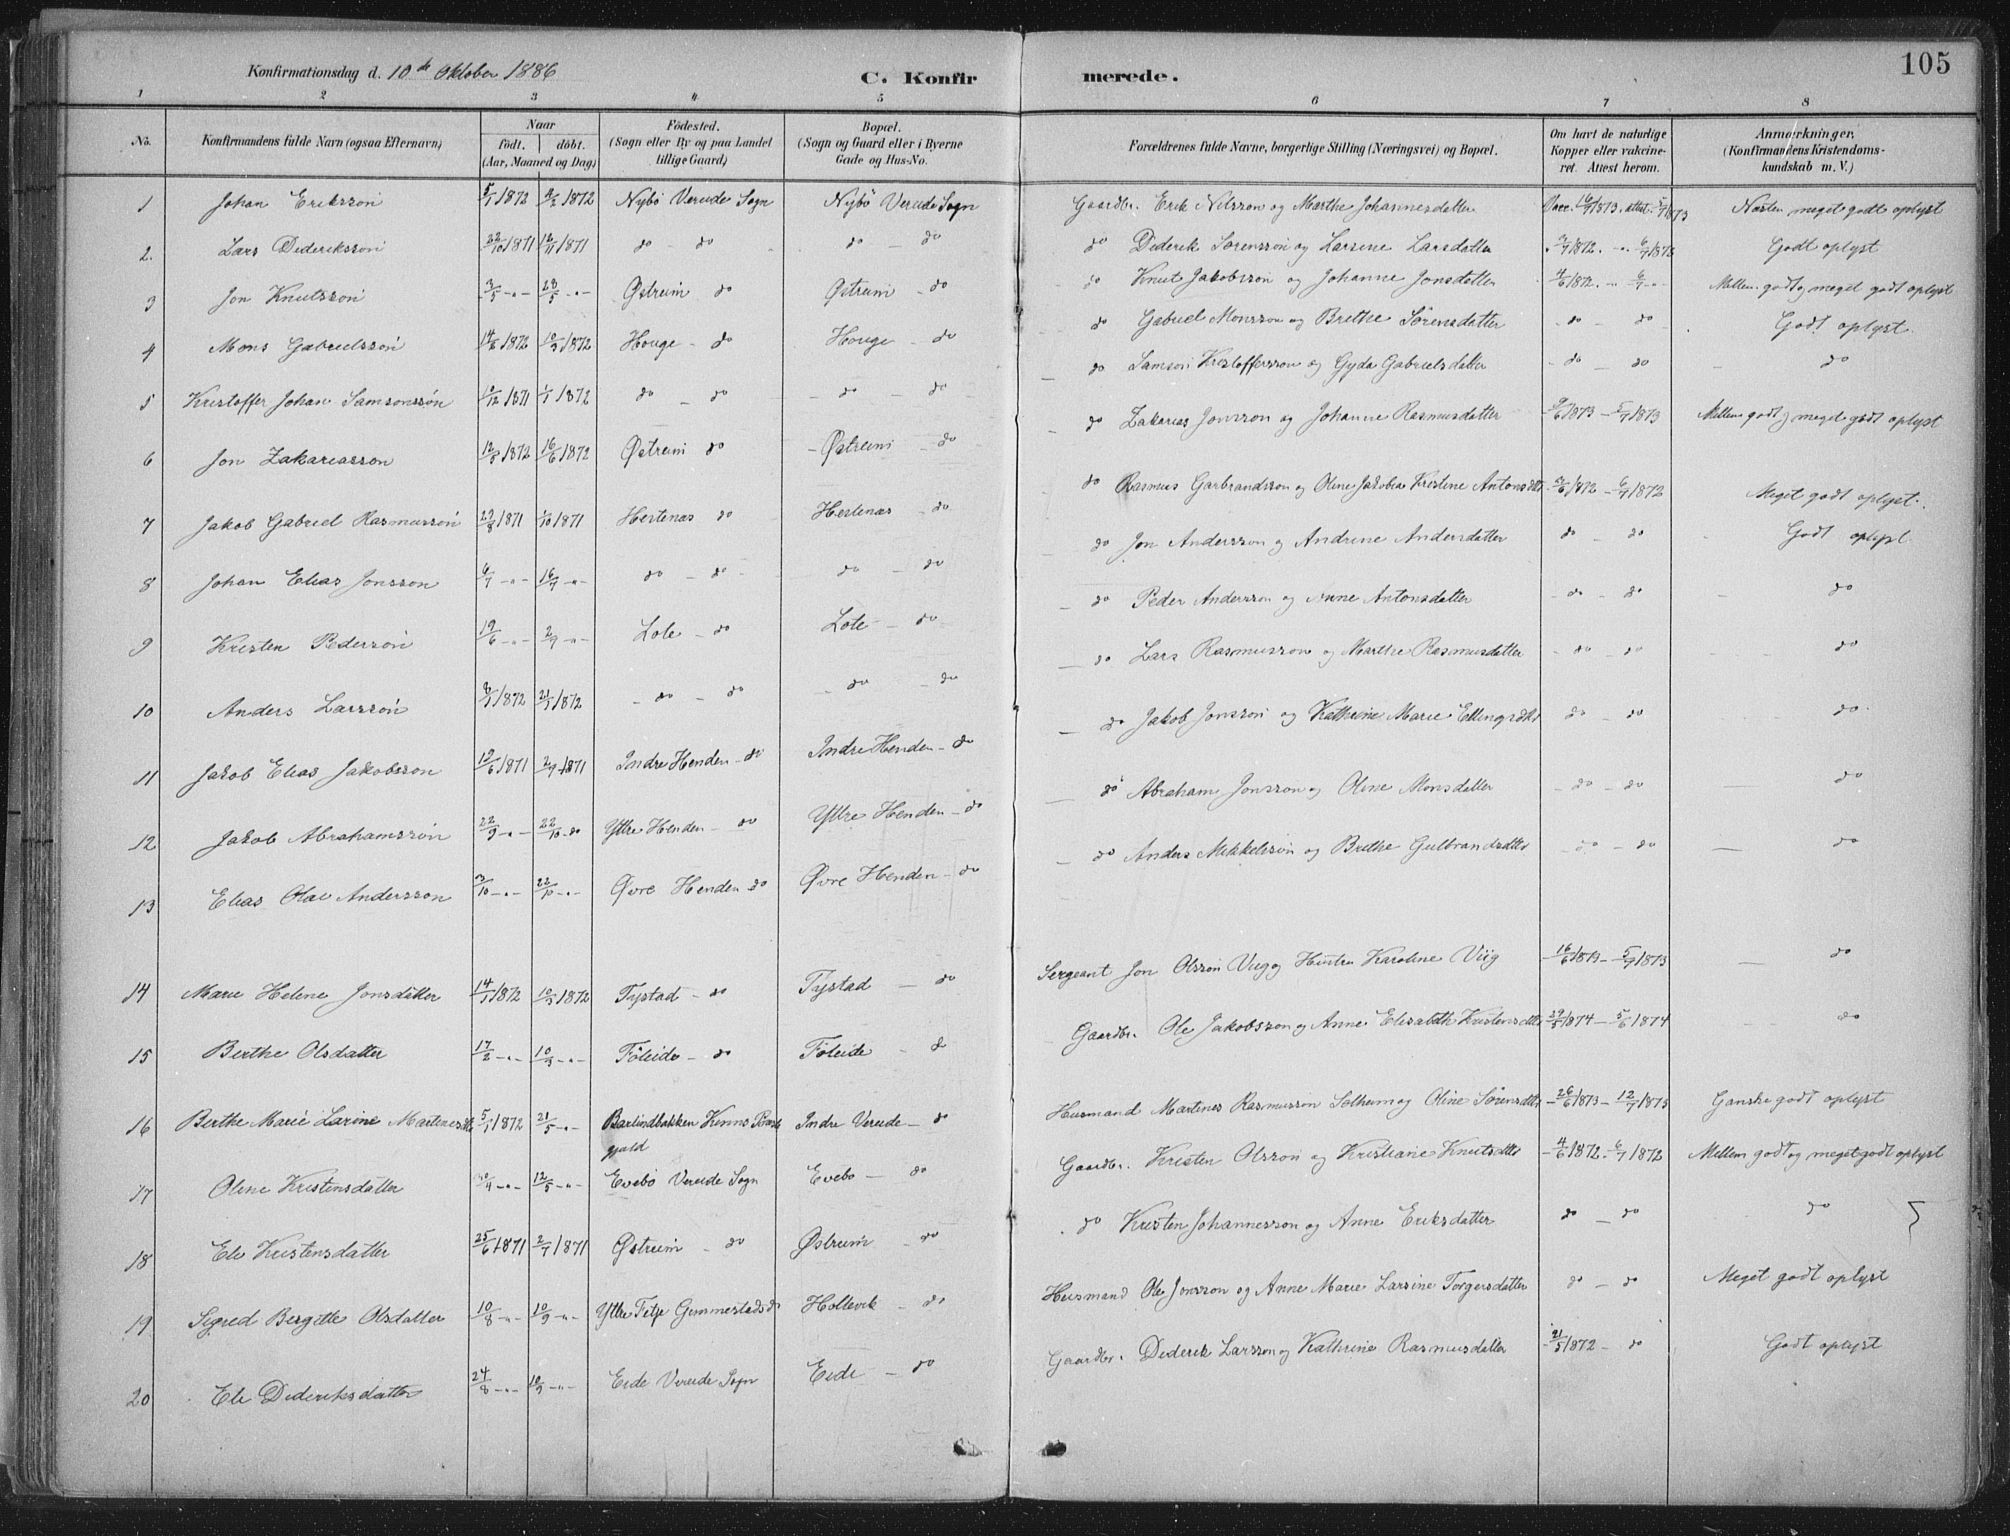 105
Konfirmationsdag d. 10de Oktober 1886
C. Konfirmerede.
1 2 3 4 5 6 7 8
No. Konfirmandens fulde Navn (ogsaa Efternavn) Naar født. døbt. (Aar, Maaned og Dag) Fødested. (Sogn eller By og paa Landet tillige Gaard) Bopæl. (Sogn og Gaard eller i Byerne Gade og Hus-No. Forældrenes fulde Navne, borgerlige Stilling (Næringsvei) og Bopæl. Om havt de naturlige Kopper eller vaccineret. Attest herom. Anmærkninger. (Konfirmandens Kristendomskundskab m. V.)
1 Johan Eriksson 5/1 1872 4/2 1872 Nybö Vereide Sogn Nybö Vereide Sogn Gaardbr. Erik Nilsson og Marthe Johannesdatter Vacc. 16/7 1873. attest. 5/7 1873 Næsten meget godt oplyst
2. Lars Dideriksson 22/10 1871 12/11 1871 do - do do - do do Diderik Sörensson og Larsine Larsdatter 3/7 1872. -"- 6/7 1872 Godt oplyst
3 Jon Knutsson 3/5 -"- 28/5 -"- Østreim do Østreim - do do Knut Jakobsson og Johanne Jonsdatter 4/6 1872. -"- 6/7 -"- Mellem godt og meget godt oplyst
4 Mons Gabrielsson 14/2 1872 10/3 1872 Houge - do Houge - do do Gabriel Monsson og Brethe Sörensdatter do - do Godt oplyst.
5 Kristoffer Johan Samsonsson 10/12 1871 1/1 1872 do - do - do - do - do Samson Kristoffersson og Gyda Gabrielsdatter - do - do do
6 Jon Zakariasson 12/5 1872 16/6 1872 Østreim do - Østreim - do - do Zakarias Jonsson og Johanne Rasmusdatter - 9/6 1873 - 5/7 1873 Mellem godt og meget godt oplyst
7 Jakob Gabriel Rasmusson 29/8 1871 1/10 1871 Hestenæs do Hestenæs - do do Rasmus Garbrandsson og Oline Jakobea Kristine Antonsdtt - 3/6 1872 - 6/7 1872 Meget godt oplyst.
8 Johan Elias Jonsson 6/7 -"- 16/7 -"- do - do do - do do Jon Andersson og Andrine Andersdatter do - do Godt oplyst
9 Kristen Pedersson 19/6 -"- 2/9 -"- Lote - do Lote - do - do Peder Andersson og Anne Antonsdatter - do - do do
10 Anders Larsson 8/1 1872 21/1 1872 - do - do - do - do - do Lars Rasmusson og Marthe Rasmusdatter - do - do do
11 Jakob Elias Jakobsson 19/6 1871 2/9 1871 Indre Henden - do Indre Henden - do - do Jakob Jonsson og Kathrine Marie Ellingsdtr do - do do
12 Jakob Abrahamsson 22/9 -"- 22/10 - do Yttre Henden - do Yttre Henden - do - do Abraham Jonsson og Oline Monsdatter - do - do do
13 Elias Olai Andersson 3/10 -"- 22/10 -"- Øvre Henden do Øvre Henden - do - do Anders Mikkelsson og Brethe Gulbrandsdtr - do - do - do
14 Marie Helene Jonsdatter 14/1 1872 10/3 1872 Tystad - do Tystad - do Sergeant Jon Olsson Viig og Hustru Karoline Viig - 16/6 1873 - 5/9 1873 - do
15 Berthe Olsdatter 17/2 -"- 10/3 -"- Föleide - do Föleide - do Gaardbr. Ole Jakobsson og Anne Elisabeth Kristensdtr 29/5 1874 - 5/6 1874 do
16 Berthe Marie Larine Martinesdtr 5/1 1872 21/5 -"- Barlindbakken Kinns Præstegjæld Indre Vereide - do Husmand Martines Rasmusson Solheim og Oline Sörensdtr - 26/6 1873 - 12/7 1873 Ganske godt oplyst
17 Oline Kristensdatter 30/4 -"- 12/5 -"- Evebö Vereide Sogn Evebö - do Gaardbr. Kristen Olsson og Kristiane Knutsdtr - 4/6 1872. 6/7 1872 Mellem godt og meget godt oplyst
18 Eli Kristensdatter 25/6 1871 2/7 1871 Østreim - do Østreim - do do Kristen Johannesson og Anne Eriksdatter do - do do
19 Sigred Bergitte Olsdatter 10/8 -"- 10/9 -"- Yttre Fetje Gimmestads do Hollevik - do Husmand Ole Jonsson og Anne Marie Larsine Torgersdatter do - do Meget godt oplyst
20 Eli Dideriksdatter 24/8 -"- 10/9 -"- Eide Vereide Sogn Eide - do Gaardbr. Diderik Larsson og Kathrine Rasmusdatter 21/5 1872 - do Godt oplyst